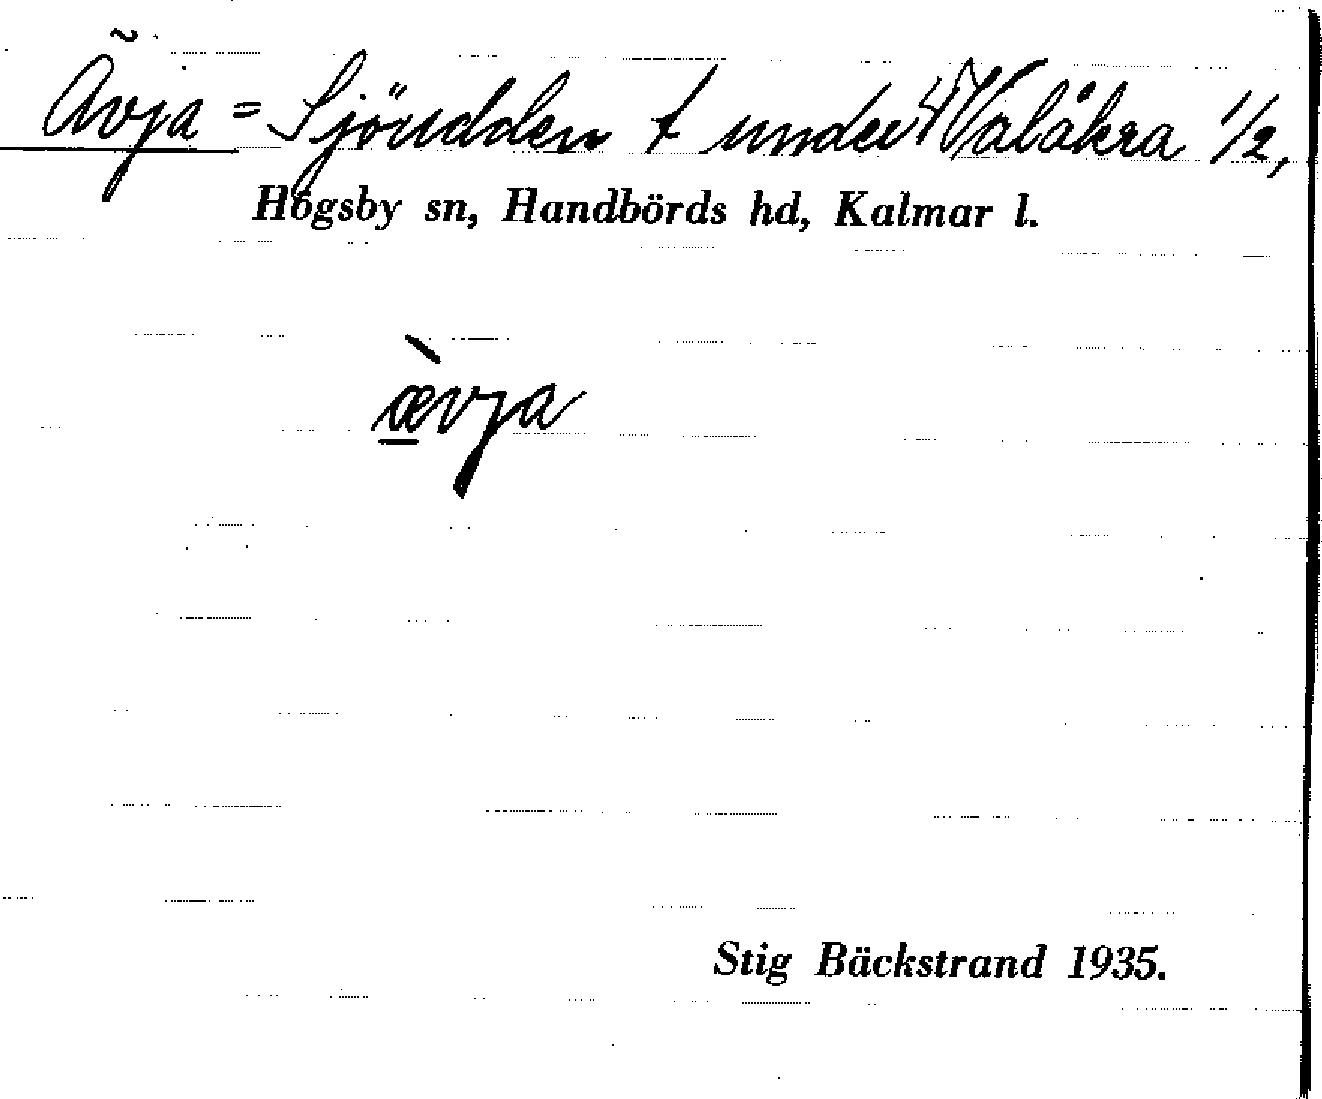 Ävja = Sjöudden t under 4 Valåkra 1/2,
Högsby sn, Handbörds hd, Kalmar l.
ævja
Stig Bäckstrand 1935.